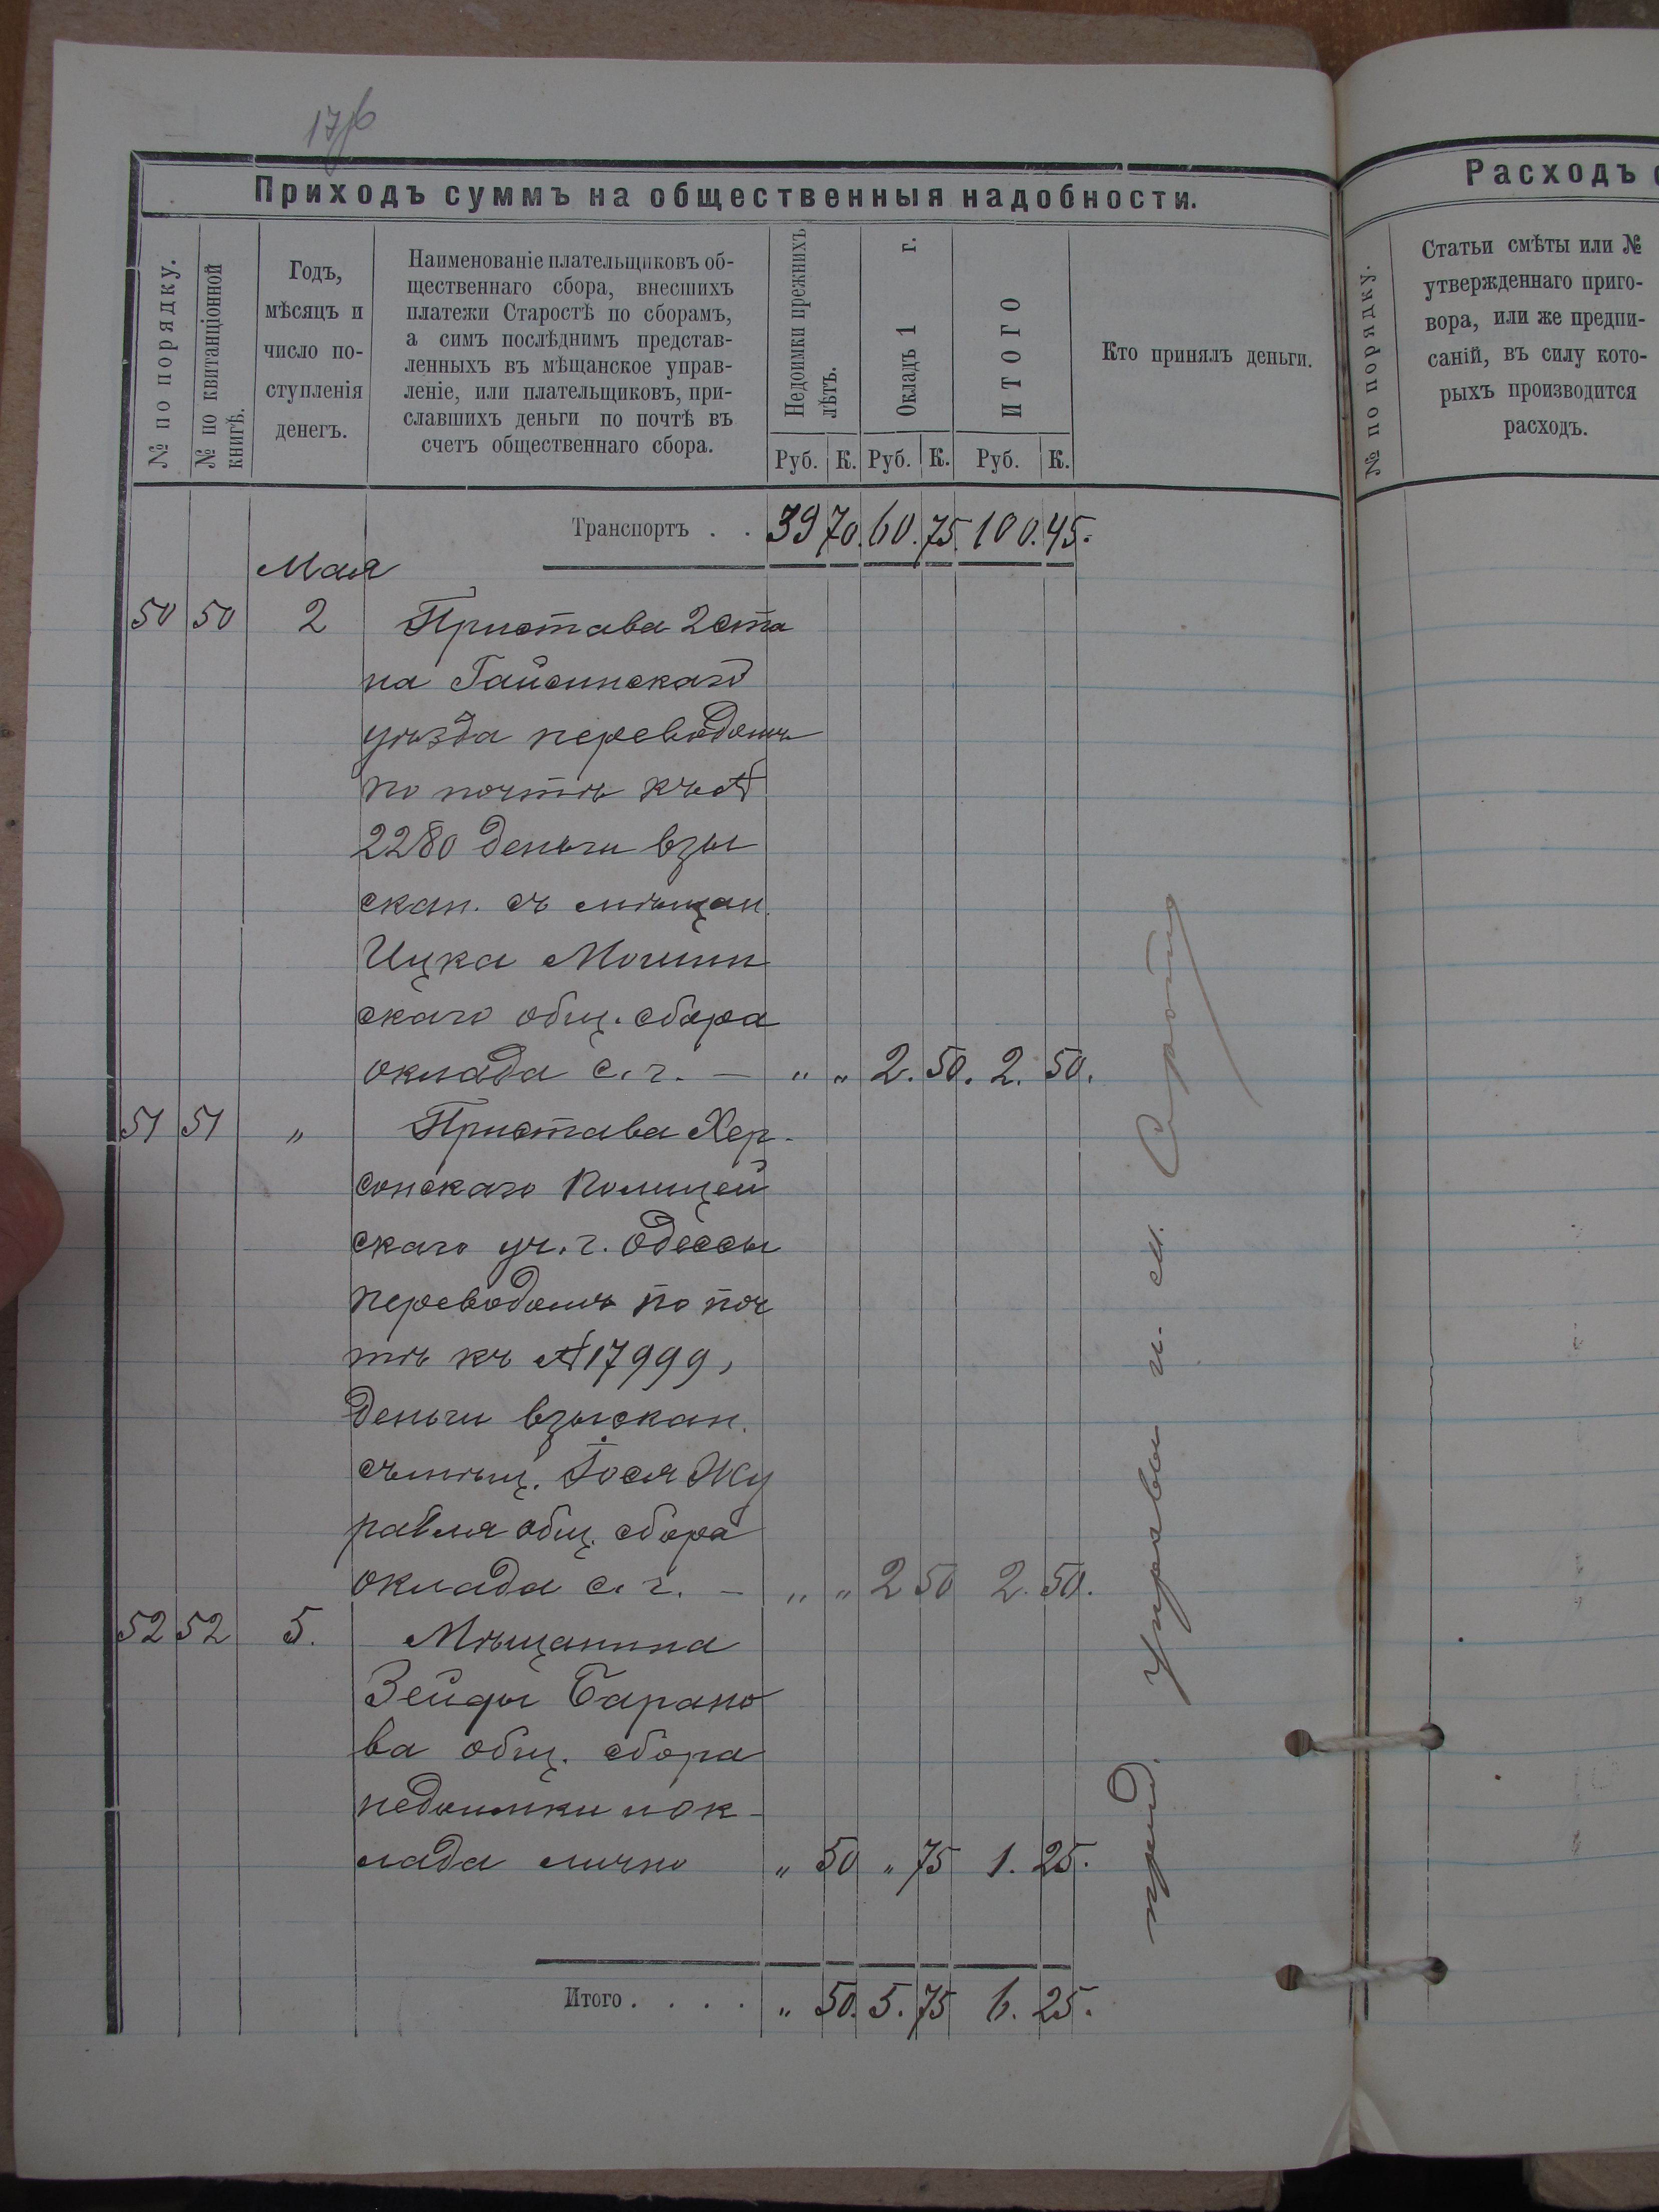 Приходъ суммъ на общественныя надобности.
№ по порядку.
№ по квитанціонной
книгѣ.
Годъ,
мѣсяцъ и
число по-
ступленія
денегъ.
Наименованіе плательщиковъ об-
щественнаго сбора, внесшихъ
платежи Старостѣ по сборамъ,
а симъ послѣднимъ представ-
ленныхъ въ мѣщанское управ-
леніе, или плательщиковъ, при-
славшихъ деньги по почтѣ въ
счетъ общественнаго сбора.
Недоимки прежнихъ
лѣтъ.
Окладъ 1 г.
ИТОГО
Руб. К. Руб. К. Руб. К.
Кто принялъ деньги.
Транспортъ . . 39 70. 60. 75. 100. 45.
Мая
50 50 2 Пристава 2 ста
на Гайсинскаго
уѣзда переводомъ
по почтѣ къ №
2280 деньги взы
скан. съ мѣщан.
Ицка Мошин
скаго общ. сбора
оклада с. г. — „ „ 2. 50. 2. 50.
51 51 „ Пристава Хер-
сонскаго Полицей
скаго уч. г. Одессы
переводомъ по поч
тѣ къ № 17999,
деньги взыскан.
съ мѣщ. Іося Жу
равля общ. сбора
оклада с. г. — „ „ 2 50 2. 50.
52 52 5. Мѣщанина
Зейды Барано
ва общ. сбора
недоимки и ок-
лада лично „ 50 „ 75 1. 25.
Итого . . . . „ 50. 5. 75 6. 25.
пред. управы и. м.
Расходъ
№ по порядку.
Статьи смѣты или №
утвержденнаго приго-
вора, или же предпи-
саній, въ силу кото-
рыхъ производится
расходъ.